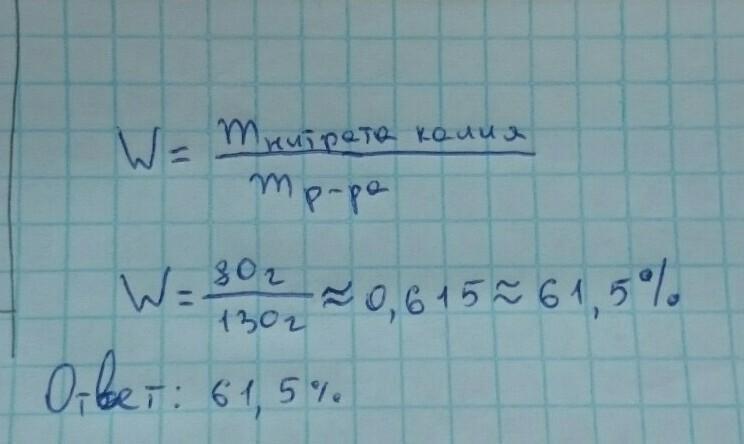 W = m нитрата калия
m р-ра
W = 80г / 130г ≈ 0,615 ≈ 61,5%
Ответ: 61,5%